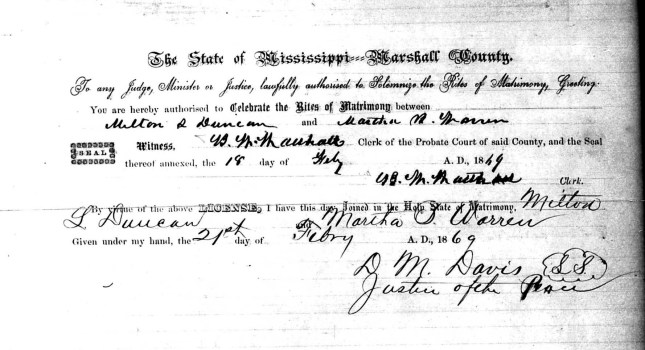 The State of Mississippi---Marshall County.
To any Judge, Minister or Justice, lawfully authorised to Solemnize the Rites of Matrimony, Greeting.
You are hereby authorised to Celebrate the Rites of Matrimony between
Milton L Duncan and Martha Warren
SEAL Witness, B. M. Clerk of the Probate Court of said County, and the Seal
thereof annexed, the 18 day of Feby A. D., 1869
B. M. Clerk.
By virtue of the above LICENSE, I have this day Joined in the Holy State of Matrimony, Milton
L Duncan and Martha S. Warren
Given under my hand, the 21st day of Febry A. D., 1869
D. M. Davis
Justice of the Peace